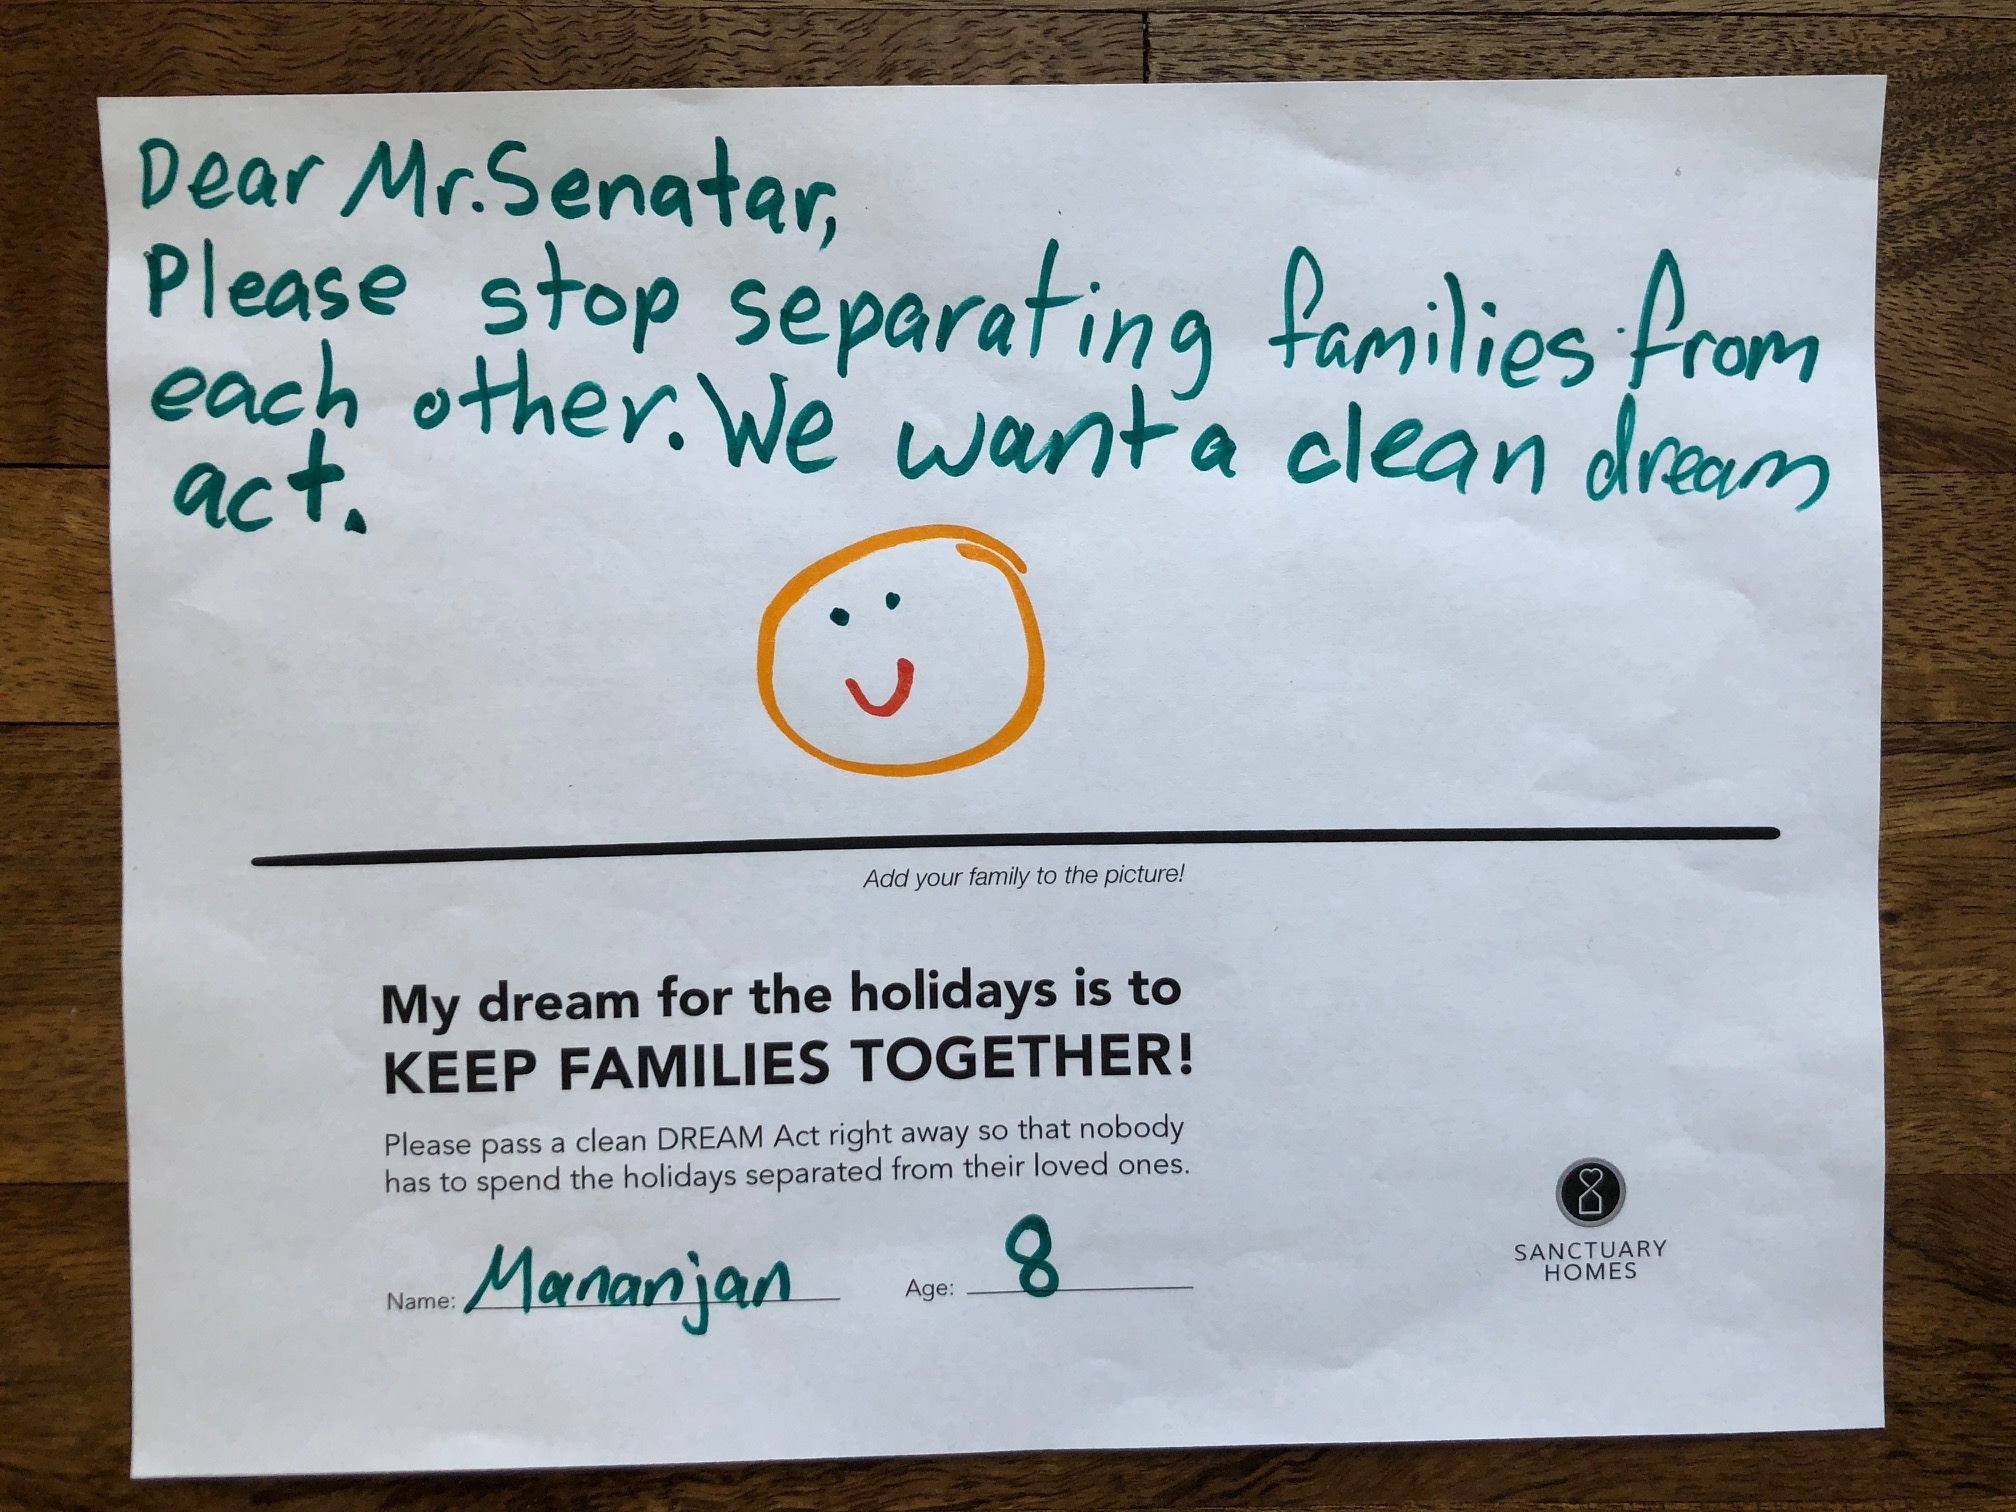 Dear Mr. Senatar,
Please stop separating families from
each other. We want a clean dream
act.
Add your family to the picture!
My dream for the holidays is to
KEEP FAMILIES TOGETHER!
Please pass a clean DREAM Act right away so that nobody
has to spend the holidays separated from their loved ones.
Name: Mananjan Age: 8
SANCTUARY
HOMES